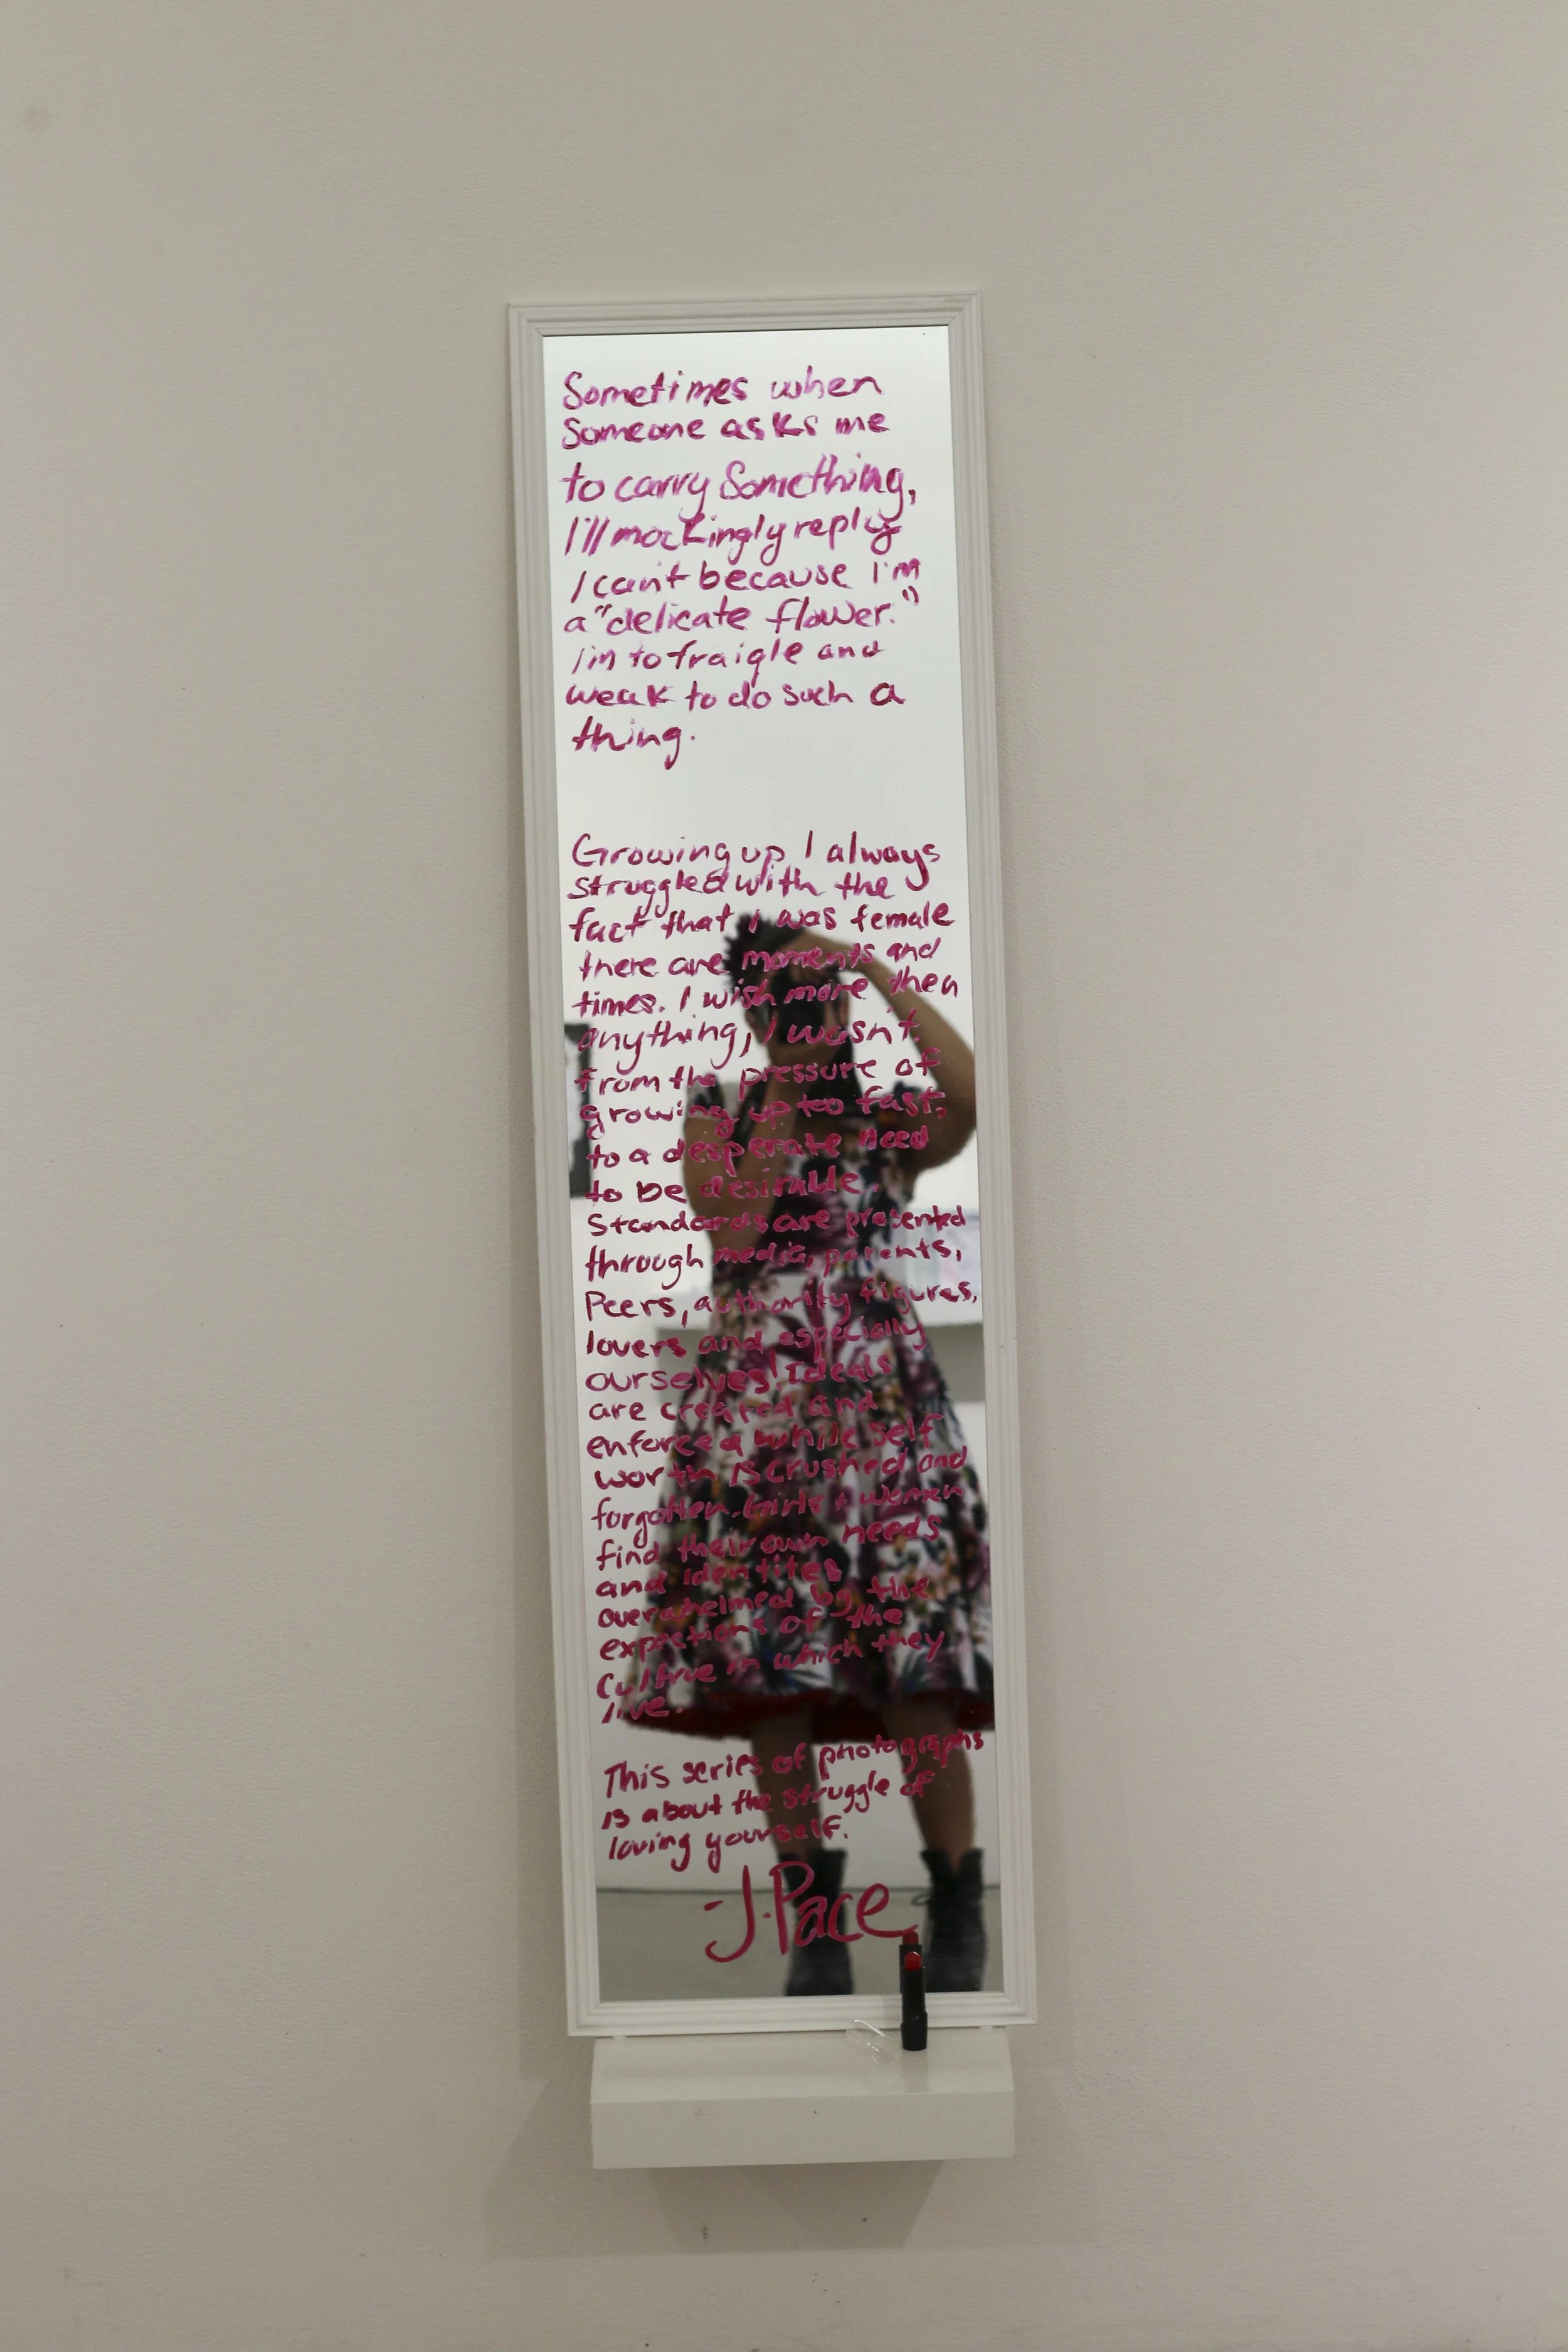 Sometimes when
Someone asks me
to carry Something,
I'll mockingly reply
I can't because I'm
a "delicate flower."
I'm to fraigle and
weak to do such a
thing.
Growing up I always
struggled with the
fact that I was female
there are moments and
times. I wish more then
anything, I wasn't.
from the pressure of
growing up too fast,
to a desperate need
to be desirable.
Standards are presented
through media, parents,
Peers, authority figures,
lovers and especially
ourselves! Ideals
are created and
enforced while self
worth is crushed and
forgotten. Girls + women
find their own needs
and identites
overwhelmed by the
expections of the
Cultrue in which they
live.
This series of photographs
is about the struggle of
loving yourself.
-J.Pace